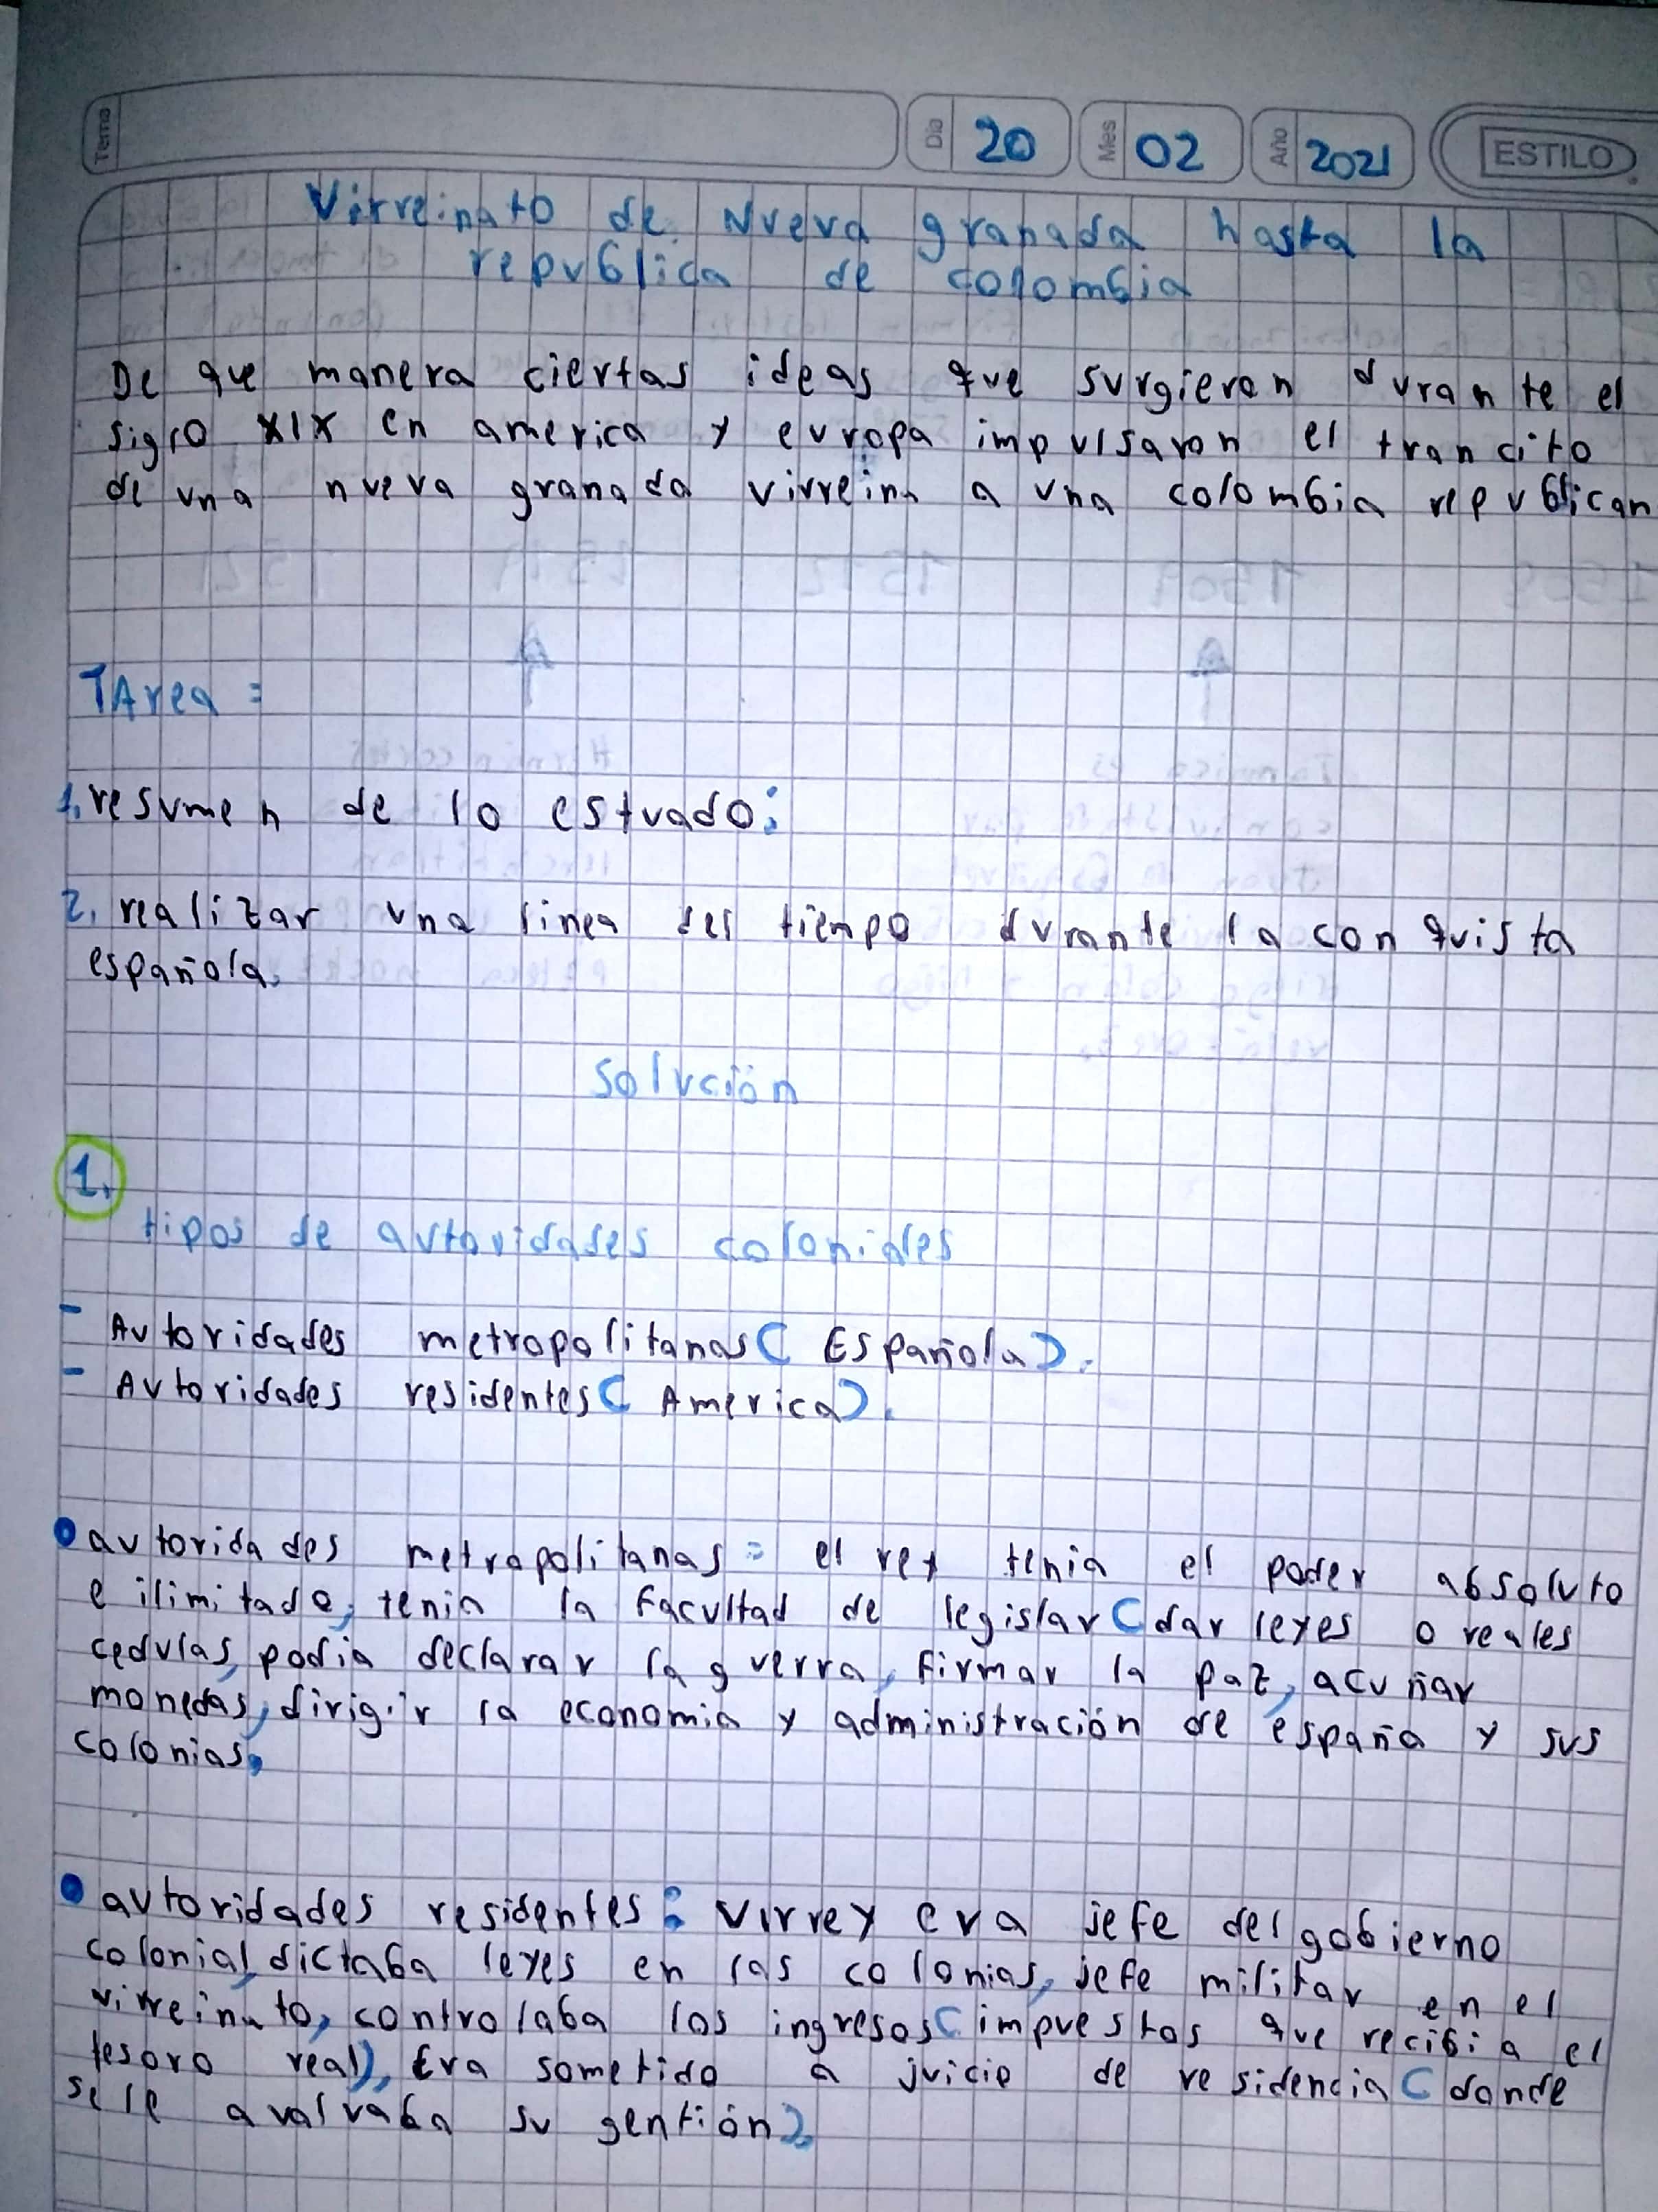 Tema
Dia 20 Mes 02 Año 2021 ESTILO
Virreinato de Nueva granada hasta la
republica de colombia
De que manera ciertas ideas que surgieron durante el
siglo XIX en america y europa impulsaron el trancito
de una nueva granada virreina a una colombia republican
TArea =
1. resumen de lo estuado:
2. realizar una linea del tiempo durante la conquista
española.
solución
1.
tipos de autoridades coloniales
- Autoridades metropolitanas ( Española ).
- Autoridades residentes ( America ).
autoridades metropolitanas = el rey tenia el poder absoluto
e ilimitado, tenia la facultad de legislar ( dar leyes o reales
cedulas, podia declarar la guerra, firmar la paz, acuñar
monedas, dirigir la economia y administración de españa y sus
colonias.
autoridades residentes : virrey era jefe del gobierno
colonial, dictaba leyes en las colonias, jefe militar en el
virreinato, controlaba los ingresos ( impuestos que recibia el
tesoro real ), Era sometido a juicio de residencia ( donde
se le avalvaba su gentión ).